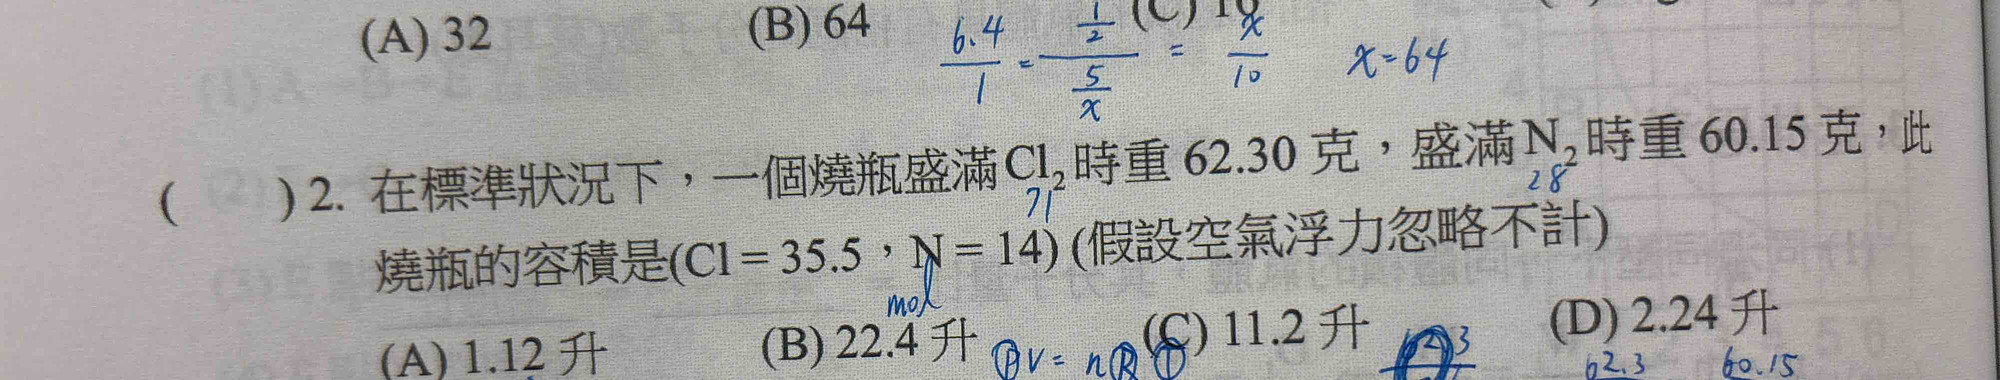 (A) 32 (B) 64 (C) 6.4/1 = (1/2)/(5/x) = x/10 x=64
( ) 2. 在標準狀況下，一個燒瓶盛滿Cl₂時重 62.30 克，盛滿N₂時重 60.15 克，此
71 28
燒瓶的容積是(Cl = 35.5，N = 14) (假設空氣浮力忽略不計)
mol
(A) 1.12 升 (B) 22.4 升 (C) 11.2 升 (D) 2.24 升
PV = nRT 62.3 60.15